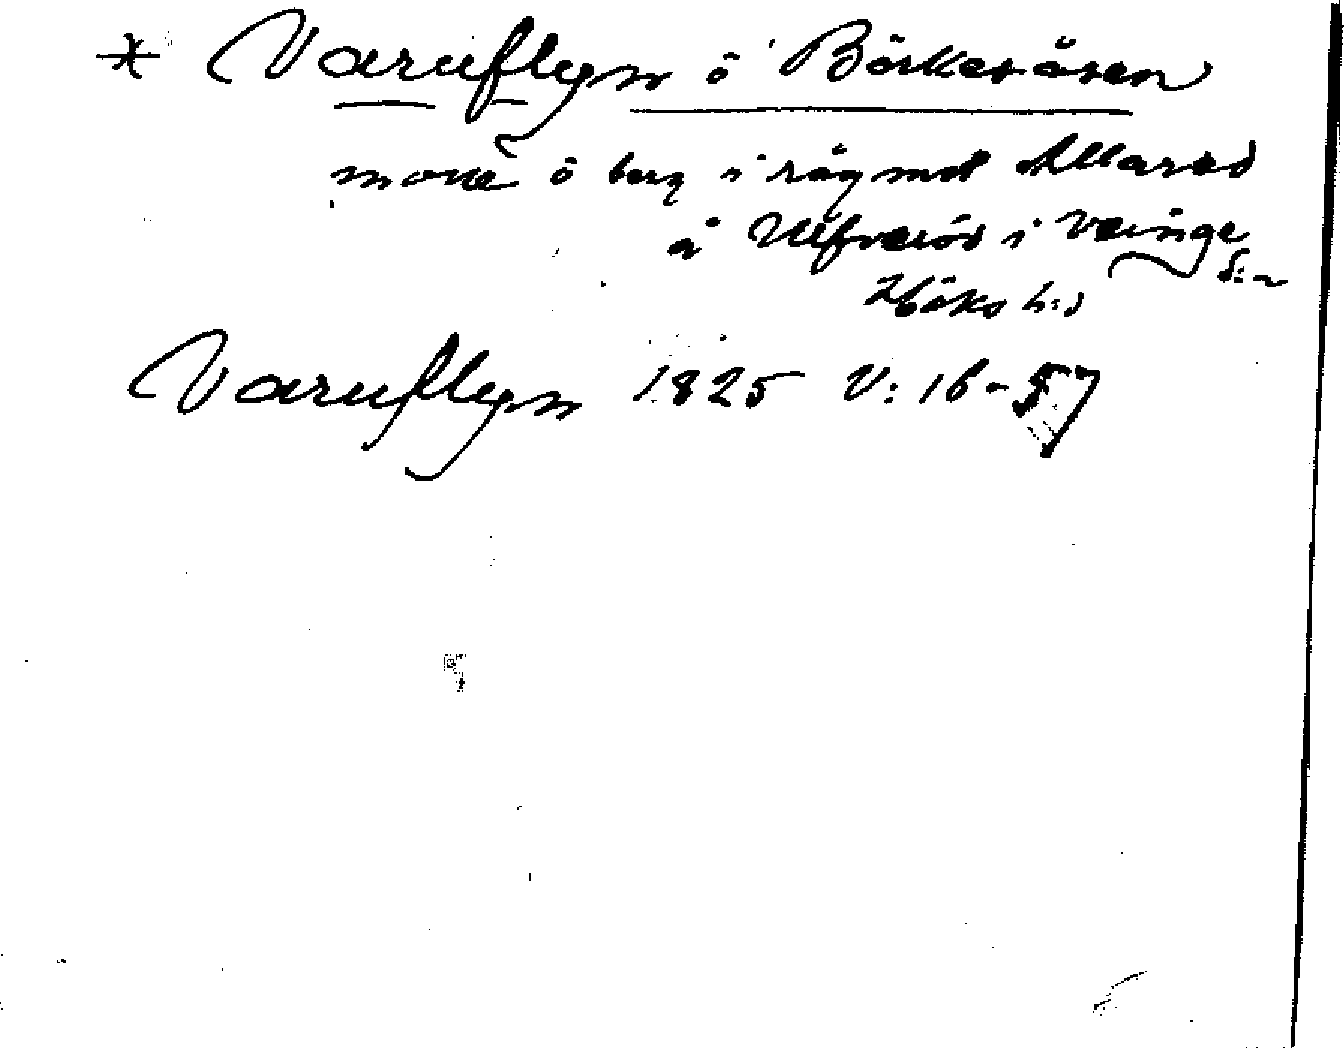 * Varuflyn ö Börkesåsen
mosse ö berg i råg mot Allarød
å Ulfverød i Veinge S:n
Höks h:d
Varuflyn 1825 V: 16-57